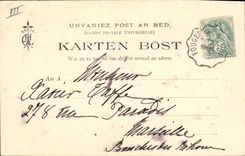 III
UNVANIEZ POST AR BED,
(UNION POSTALE UNIVERSELLE)
KARTEN BOST
War an tu-man na vez skrivet nemed an adress
A
Monsieur
Xavier
278 rue Paradis
Marseille
Bouches du Rhône